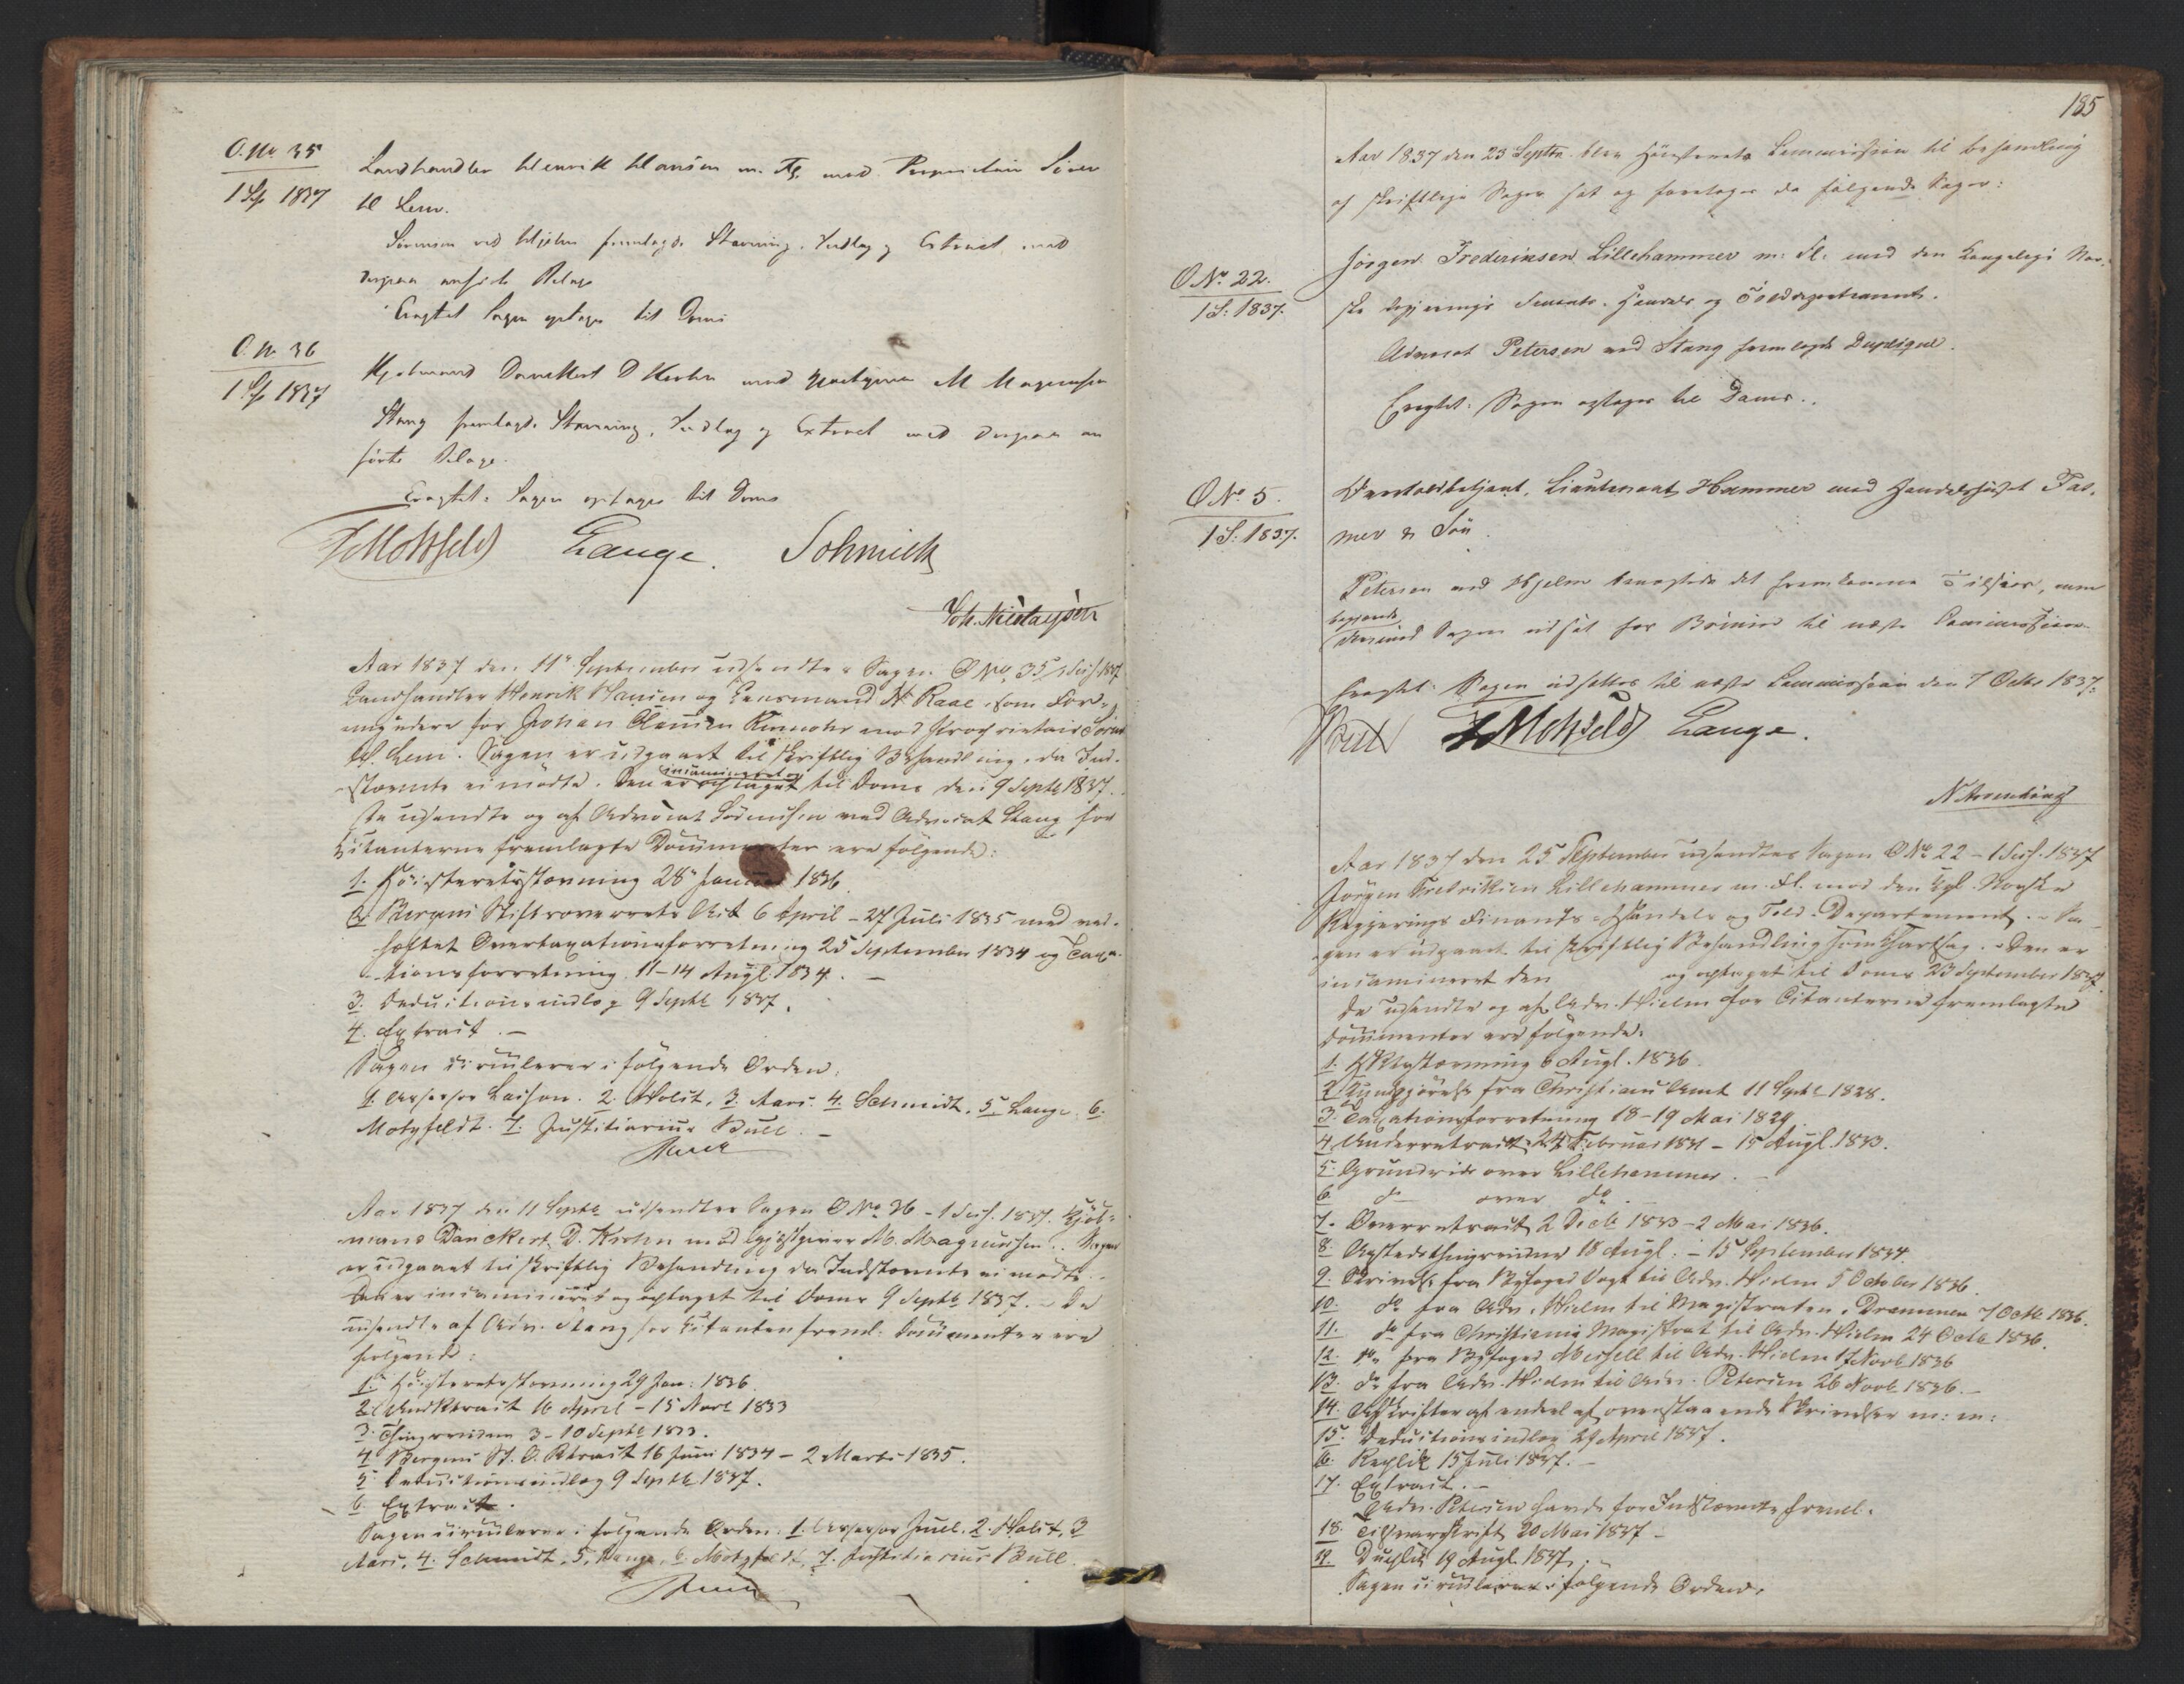 O. No 35
1 S. 1837
Landhandler Henrik Hansen m. Fl. mod Proprietair Sivert
til Lem.
Sörensen ved Hjelm fremlagde Stævning, Indlæg og Extract med
derpaa anførte Bilage
Eragtet Sagen optages til Doms
O. No 36
1 S. 1837
Kjøbmand Danckert D Krohn mod Gjestgiver M Magnussen
Stang fremlagde Stævning, Indlæg og Extract med derpaa an
førte Bilage.
Eragtet: Sagen optages til Doms
Motzfeldt Lange. Schmidt
Joh.
Aar 1837 den 11te September udsendtes Sagen O No 35 1 Sess. 1837
Landhandler Henrik Hansen og Lensmand N. Raae, som For-
myndere for Johan mod Proprietair Sivert
til Lem. Sagen er udgaaet til skriftlig Behandling, da Ind-
stævnte ei mødte. Den er incamineret og optaget til Doms den 9 Septbr 1837.
De udsendte og af Advocat Sörensen ved Advocat Stang for
Citanterne fremlagte Documenter ere følgende:
1. Høiesteretsstævning 28de Januar 1836.
2. Bergens Stiftsoverrets Act 6 April – 27 Juli 1835 med ved-
hæftet Overtaxationsforretning 25 September 1834 og Taxa-
tionsforretning 11–14 Augt 1834. –
3. Deductionsindlæg 9 Septbr 1837.
4. Extract. –
Sagen circulerer i følgende Orden:
1. Assessor Larson. 2. Holst, 3. Aars. 4. Schmidt. 5. Lange. 6.
Motzfeldt. 7. Justitiarius Bull. –
Aar 1837 den 11 Septbr udsendtes Sagen O No 36 – 1 Sess. 1837. Kjøb-
mand Danckert D. Krohn mod Gjestgiver M. Magnussen. Sagen
er udgaaet til skriftlig Behandling da Indstævnte ei mødte. –
Den er incamineret og optaget til Doms 9 Septbr 1837. – De
udsendte af Adv. Stang for Citanten freml. Documenter ere
følgende:
1. Høiesteretsstævning 29 Jan: 1836.
2. Underretsact 16 April – 15 Novbr 1833
3. Thingsvidne 3–10 Septbr 1833.
4. Bergens St. O. Retsact 16 Juni 1834 – 2 Marts 1835.
5. Deductionsindlæg 9 Septbr 1837.
6. Extract.
Sagen circulerer i følgende Orden: 1. Assessor Juell. 2. Holst, 3
Aars, 4. Schmidt, 5. Lange, 6. Motzfeldt, 7. Justitiarius Bull.
185
Aar 1837 den 23 Septbr. blev Høiesterets Commission til Behandling
af skriftlige Sager sat og foretoges da følgende Sager:
O No. 22.
1 S: 1837.
Jörgen Frederiksen Lillehammer m: Fl: mod den Kongelige Nor-
ske Regjerings Finants-, Handels og Tolddepartement.
Advocat Petersen ved Stang fremlagde Duplique.
Eragtet: Sagen optages til Doms.
O No. 5.
1 S: 1837.
Lieutenant Hammer mod Handelshuset Fas-
mer & Søn.
Petersen ved Hjelm det fremkomne Tilsvar, men
begjerede
Sagen udsat for Beviis til næste Commission
Eragtet: Sagen udsættes til næste Commission den 7 Octbr 1837.
Bull Motzfeldt Lange.
Aar 1837 den 25 September udsendtes Sagen O No 22 – 1 Sess. 1837
Jørgen Fredriksen Lillehammer m. Fl. mod den Kgl. Norske
Regjerings Finants- Handels og Told-Departement. – Sa-
gen er udgaaet til skriftlig Behandling som Extrasag. – Den er
incamineret den og optaget til Doms 23 September 1837.
De udsendte og af Adv. Hielm for Citanterne fremlagte
Documenter ere følgende:
1. HRetsstævning 6 Augt. 1836.
2. Kundgjørelse fra Christians Amt 11 Septbr 1828.
3. Taxationsforretning 18–19 Mai 1829.
4. Underretsact 24 Februar 1831 – 15 Augt. 1833.
5. Grundrids over Lillehammer. –
6. do over do. –
7. Overretsact 2 Decbr 1833 – 2 Mai 1836.
8. Aastedsthingsvidne 18 Augt. – 15 September 1834.
9. Skrivelse fra Byfoged Vogt til Adv. Hielm 5 October 1836.
10. do fra Adv. Hielm til Magistraten i Drammen 7 Octbr 1836.
11. do fra Christiania Magistrat til Adv. Hielm 24 Octbr 1836.
12. do fra Byfoged Messell til Adv. Hielm 17 Novbr 1836
13. do fra Adv. Hielm til Adv. Petersen 26 Novbr 1836. –
14. Afskrifter af endeel af ovenstaaende Skrivelser m: m:
15. Deductionsindlæg 29 April 1837.
16. Replik 15 Juli 1837. –
17. Extract. –
Adv. Petersen havde for Indstævnte freml.
18. Tilsvarsskrift 20 Mai 1837 –
19. Duplik 19 Augt. 1837. –
Sagen circulerer i følgende Orden: